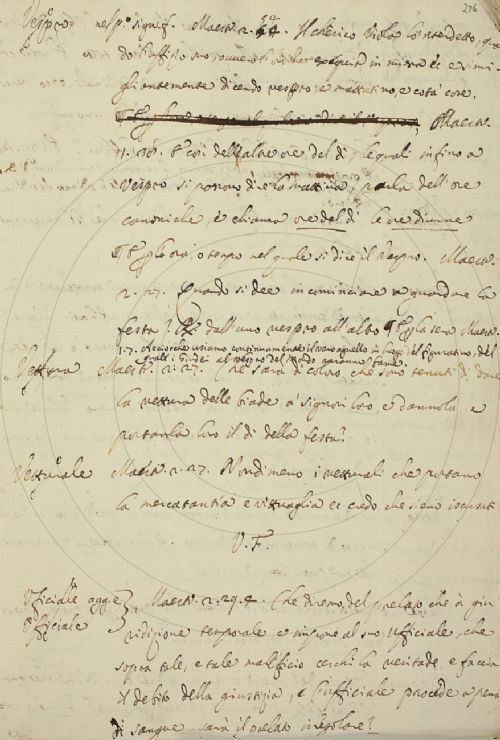 276
Vespro nel p.º signif. Maestr. 2. 54. Il cherico viola lo interdetto,
do l'uffizio suo, ovvero in missa &c e simi-
gliantemente dicendo vespro e mattutino, e cotà core.
Maestr.
11. 38. E così dell'altre ore del dì, le quali infino a
vespro si possono dì e la mattina, parla dell'ore
canoniche, e chiama ore del dì le ore diurne
¶ E ora, o tempo nel quale si dice il vespro. Maestr.
2. 27. Quando si dee incominciare a guardare la
festa? dall'uno vespro all'altro ¶ sera Maestr.
1. 7. Acciocchè usiamo continuamente il vero agnello in luogo del figurativo, del
al vespro del Mondo aranno fame.
Vettura Maestr. 2. 27. Che sarà di coloro che sono tenuti di dare
la vettura delle biade a' signori loro e dannola, e
portanla loro il dì della festa?
Vetturale Maestr. 2. 27. Nondimeno i vetturali che portano
la mercatantia e vittuaglia &c credo che sieno iscusati
V. F.
Vficiale agg.e Maestr. 2. 29. 4. Che diremo del prelato che à giu
Officiale ridizione temporale, e impone al suo Ufficiale, che
sopra tale, e tale malificio cerchi la veritade, e faccia
il debito della giustizia, e l'ufficiale procede a pena
di sangue, sarà il prelato irregolare?